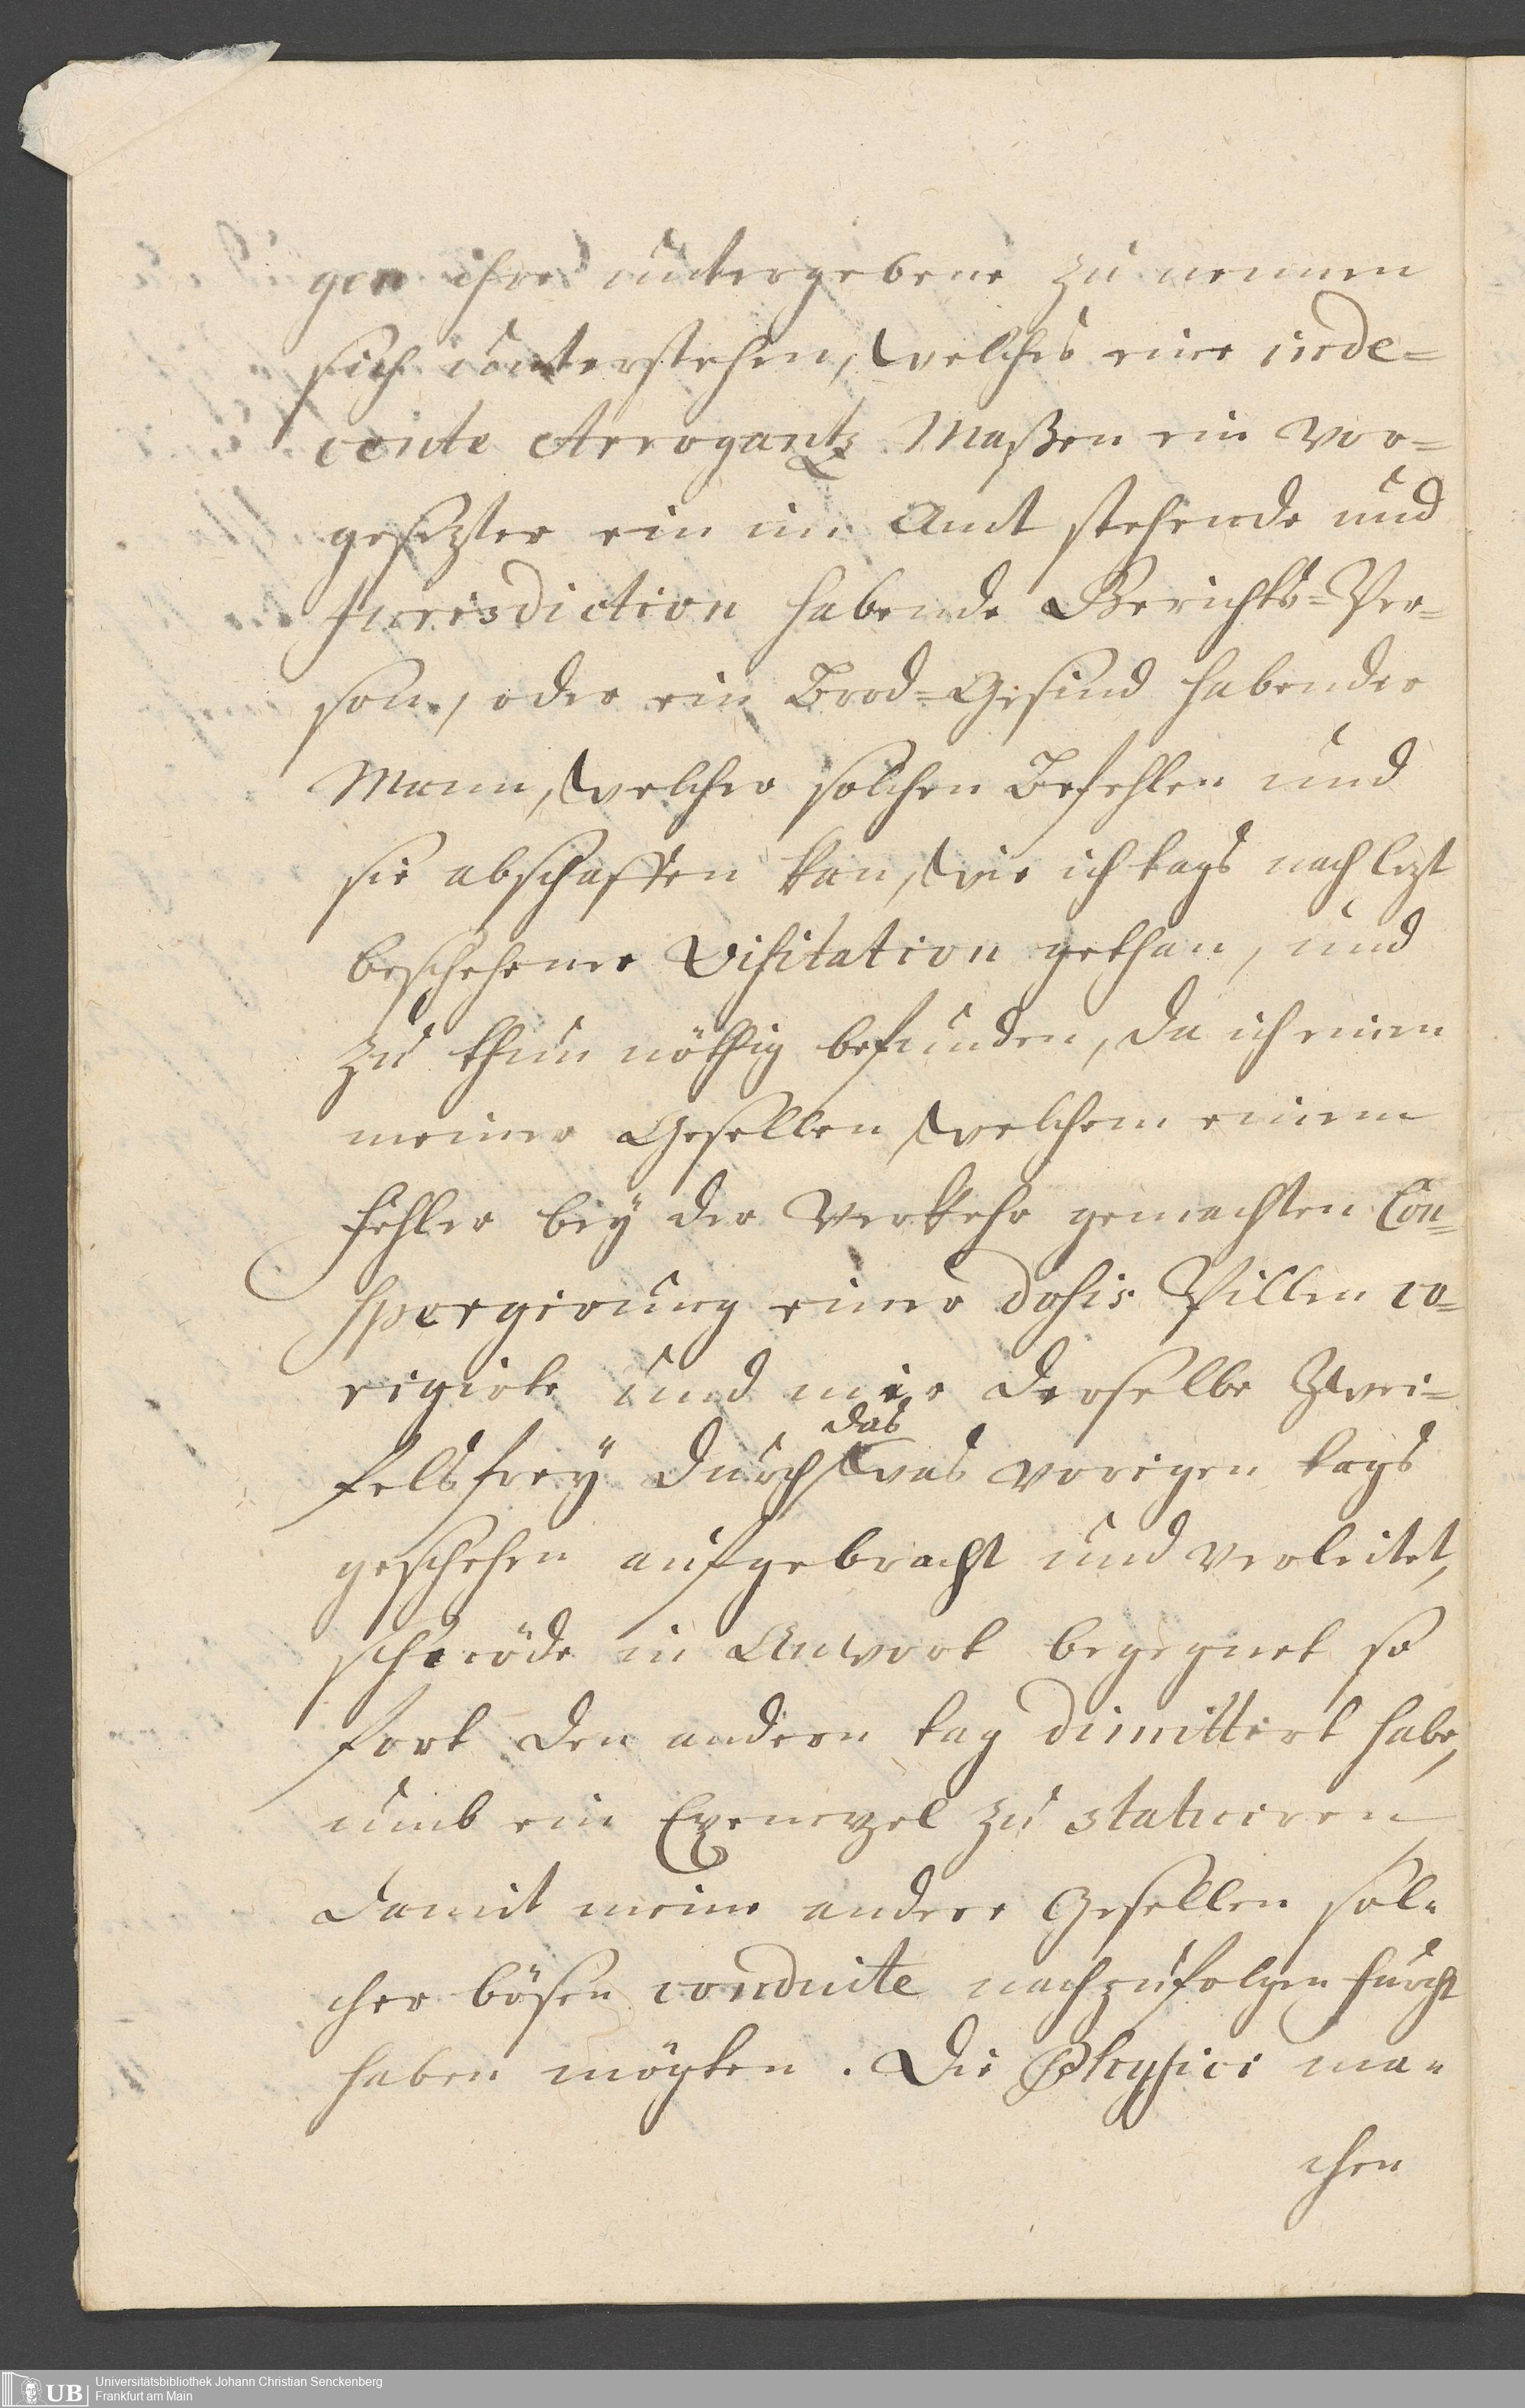 gen ihre untergebene zu nennen
sich unterstehen, welches eine inde=
cente Arrogantz Maßen ein vor=
gesezter ein im Amt stehende und
Jurisdiction habende Gerichts=Per=
son, oder ein Brod=Gesind habender
Mann, welcher solchen Befehlen und
sie abschaffen kan, wie ich tags nach lezt
beschehener Visitation gethan, und
zu thun nöthig befunden, da ich einen
meiner Gesellen, welchem einem
fehler bey der Verkehr gemachten Con=
spergirung einer dosis Pillen co=
rigirte und mir derselbe Zwei=
das
felsfrey durch was vorigen tags
geschehen aufgebracht und verleitet,
schnöde in Anwort begegnet so
fort den andern tag dimittirt habe,
umb ein Exempel zu statuiren,
damit meine andere Gesellen sol=
cher bösen conduite nachzufolgen furcht
haben mögten. Die Physici ma=
chen
Universitätsbibliothek Johann Christian Senckenberg
UB Frankfurt am Main